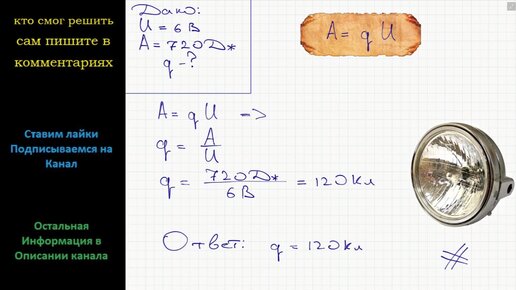 кто смог решить
сам пишите в
комментариях
Ставим лайки
Подписываемся на
Канал
Остальная
Информация в
Описании канала
Дано:
U = 6 В
A = 720 Дж
q - ?
A = q U
A = q U =>
q = A / U
q = 720 Дж / 6 В = 120 Кл
Ответ: q = 120 Кл